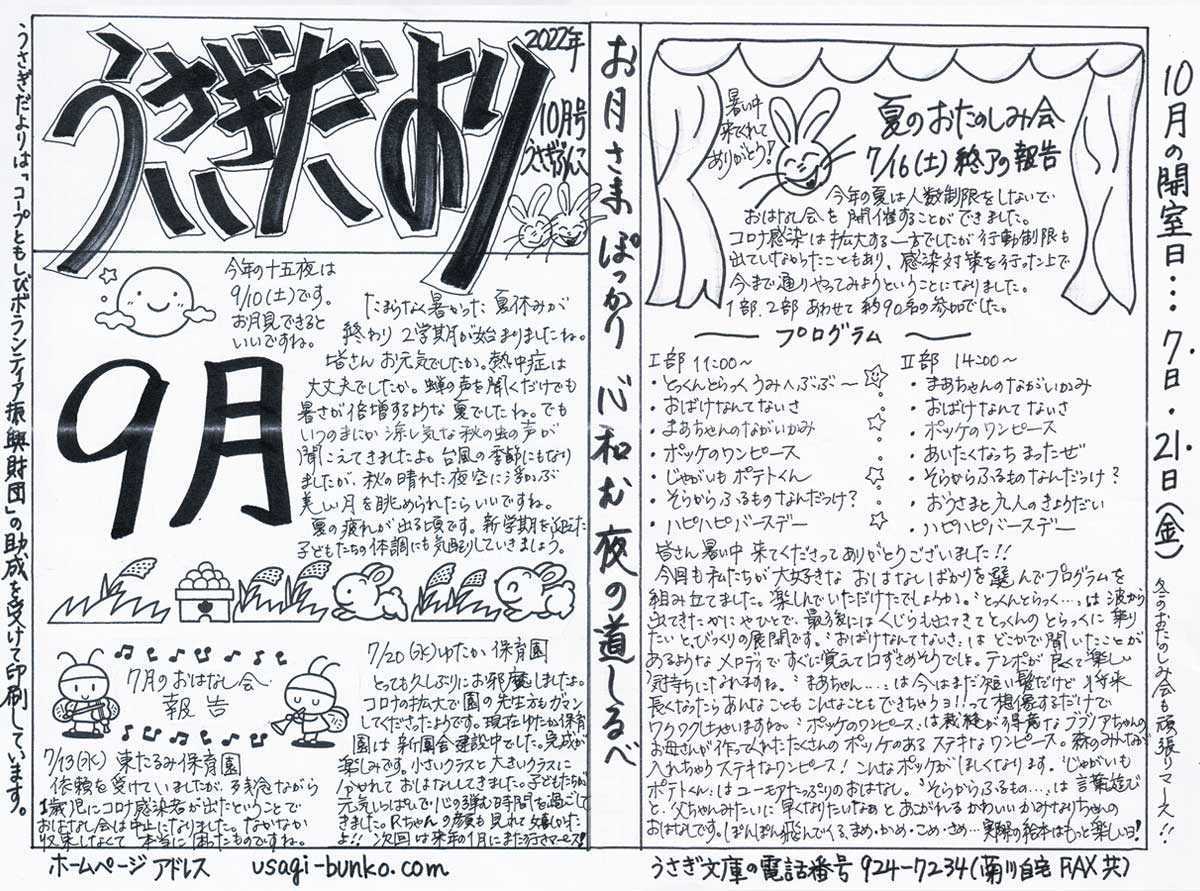 うさぎだよりは「コープともしびボランティア振興財団」の助成を受けて印刷しています。
うさぎだより
2022年
10月号
うさぎぶんこ
今年の十五夜は
9/10(土)です。
お月見できると
いいですね。
9月
たまらなく暑かった夏休みが
終わり2学期が始まりましたね。
皆さんお元気でしたか。熱中症は
大丈夫でしたか。蝉の声を聞くだけでも
暑さが倍増するような夏でしたね。でも
いつのまにか涼し気な秋の虫の声が
聞こえてきましたよ。台風の季節にもなり
ましたが、秋の晴れた夜空に浮かぶ
美しい月を眺められたらいいですね。
夏の疲れが出る頃です。新学期を迎えた
子どもたちの体調にも気配りしていきましょう。
7月のおはなし会
報告
7/13(水) 東たるみ保育園
依頼を受けていましたが、残念ながら
1歳児にコロナ感染者が出たということで
おはなし会は中止になりました。なかなか
収束しなくて本当に困ったものですね。
7/20(水)ゆたか保育園
とっても久しぶりにお邪魔しました。
コロナの拡大で園の先生方もガマン
してくださったようです。現在ゆたか保育
園は新園舎建設中でした。完成が
楽しみです。小さいクラスと大きいクラスに
分かれておはなししてきました。子どもたちが
元気いっぱいで心の弾む時間を過ごして
きました。Rちゃんの顔も見れて嬉しかった
よ!! 次回は来年の1月にまた行きマース!
ホームページアドレス usagi-bunko.com
お月さまぽっかり 心和む夜の道しるべ
暑い中
来てくれて
ありがとう!
夏のおたのしみ会
7/16(土)終了の報告
今年の夏は人数制限をしないで
おはなし会を開催することができました。
コロナ感染は拡大する一方でしたが行動制限も
出ていなかったこともあり、感染対策を行った上で
今まで通りやってみようということになりました。
1部、2部あわせて約90名の参加でした。
プログラム
I部 11:00〜
・とっくんとらっくうみへぶぶ〜
・おばけなんてないさ
・まあちゃんのながいかみ
・ポッケのワンピース
・じゃがいもポテトくん
・そらからふるものなんだっけ?
・ハピハピバースデー
II部 14:00〜
・まあちゃんのながいかみ
・おばけなんてないさ
・ポッケのワンピース
・あいたくなっちまったぜ
・そらからふるものなんだっけ?
・おうさまと九人のきょうだい
・ハピハピバースデー
皆さん暑い中来てくださってありがとうございました!!
今回も私たちが大好きなおはなしばかりを選んでプログラムを
組み立てました。楽しんでいただけたでしょうか。"とっくんとらっく…"は波から
出てきたかにやひとで、最後にはくじらも出てきてとっくんのとらっくに乗り
たいと、びっくりの展開です。"おばけなんてないさ"はどこかで聞いたことが
あるようなメロディですぐに覚えて口ずさめそうでは。テンポが良くて楽しい
気持ちになれますね。"まあちゃん…"は今はまだ短い髪だけど将来
長くなったらあんなこともこんなこともできちゃうヨ!って想像するだけで
ワクワクしちゃいますね。"ポッケのワンピース"は裁縫が得意なブブノアちゃんの
お母さんが作ってくれたたくさんのポッケのあるステキなワンピース。森のみんなが
入れちゃうステキなワンピース!こんなポッケがほしくなります。"じゃがいも
ポテトくん"はユーモアたっぷりのおはなし。"そらからふるもの…"は言葉遊び
と、父ちゃんみたいに早くなりたいなぁとあこがれるかわいいかみなりちゃんの
おはなしです。ぽんぽん飛んでくるまめ・かめ・こめ・さめ…実際の絵本はもっと楽しいヨ!
うさぎ文庫の電話番号 924-7234(菊川自宅 FAX共)
10月の開室日…7日・21日(金)
冬のおたのしみ会も頑張りマース!!